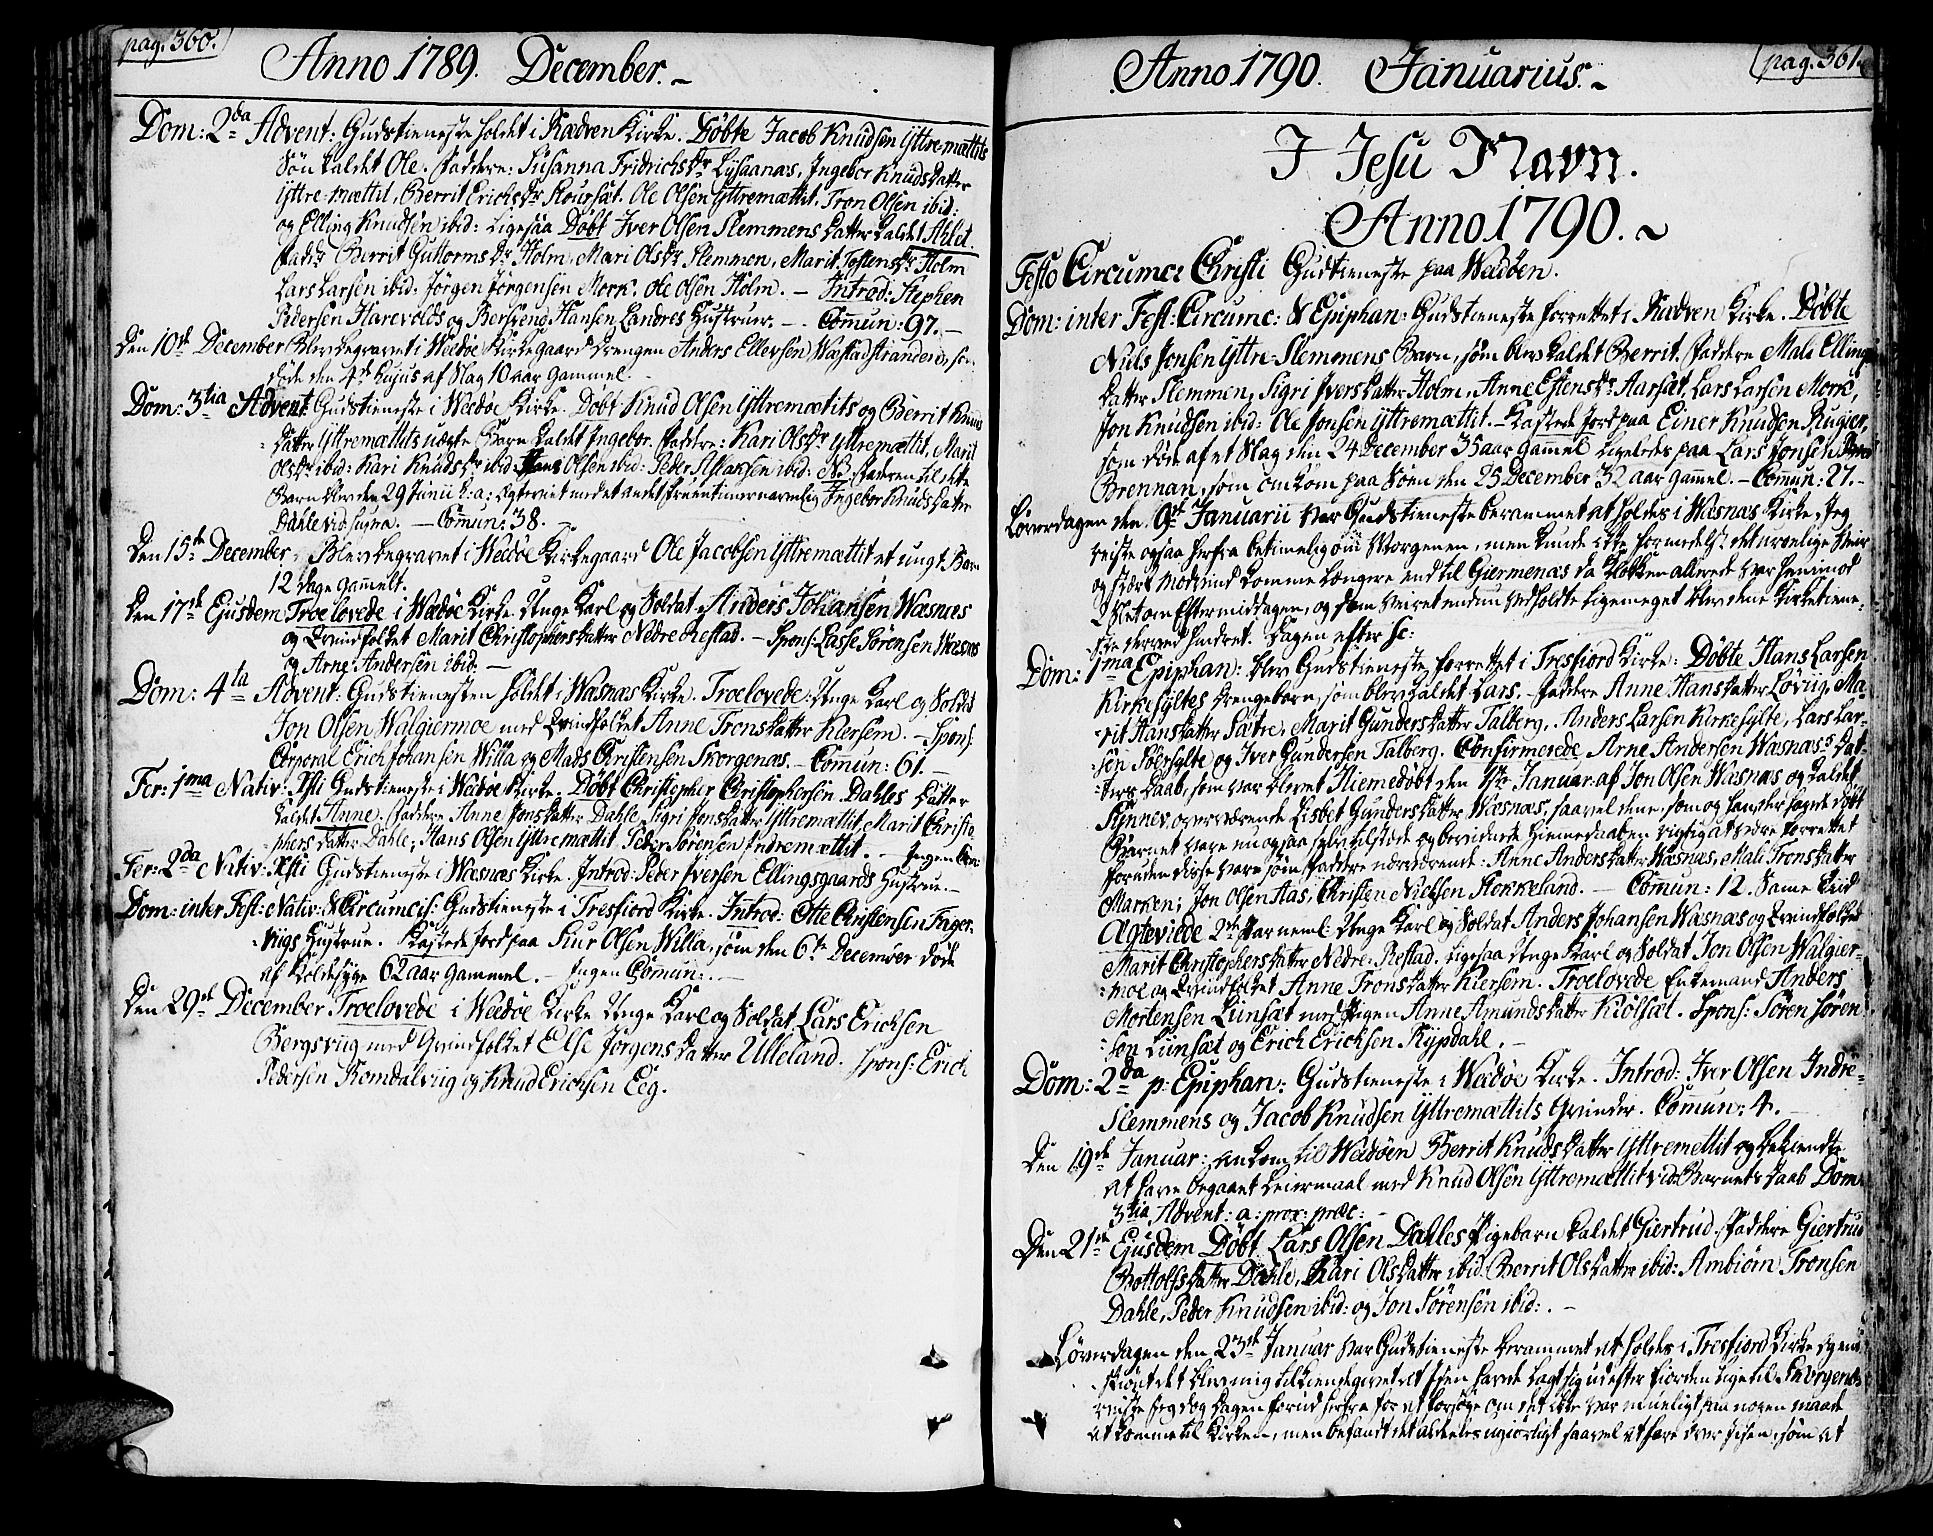 pag. 360.
Anno 1789. December. ~
Dom: 2da Advent: Gudstieneste holdet i Rødven Kirke. Døbte Jacob Knudsen Yttre-mættits
Søn kaldet Ole. Faddere: Susanna Fridrichsdr Lysaanæs, Ingebor Knudsdatter
Yttre-mættit, Berrit Erichsdr Koursæt. Ole Olsen Yttremættit. Tron Olsen ibid:
og Elling Knudsen ibid: Ligesaa Døbt Iver Olsen Slemmens Datter kaldet Ahlet.
Faddr Berrit Guttormsdr Holm, Mari Olsdr Slemmen, Marit Tostensdr Holm
Lars Larsen ibid: Jørgen Jørgensen Mork. Ole Olsen Holm. — Introd: Stephen
Pedersen Harevolds og Bersvend Hansen Landres Hustruer. — Comun: 97. —
Den 10de December Blev begravet i Wedøe Kirkegaard Drengen Anders Ellevsen Wæstadstranden, som
døde den 4de hujus af Slag 10 aar gammel. -
Dom: 3tia Advent Gudstieneste i Wedøe Kirke. Døbt Knud Olsen Yttremættits og Berrit Knuds
datter Yttremættits uægte Barn kaldet Ingebor. Faddere: Kari Olsdr Yttremættit, Marit
Olsdr ibid: Kari Knudsdr ibid: Hans Olsen ibid: Peder Aslaksen ibid: NB. Faderen til dette
Barn blev den 29 Junii h: a: Egteviet med et andet Fruentimer navnlig Ingebor Knudsdatter
Dahle vid supra. — Comun: 38. —
Den 15de December, Blev begravet i Wedøe Kirkegaard Ole Jacobsen Yttremættit et ungt Barn
12 dage gammelt.
Den 17de Ejusdem Troelovede i Wedøe Kirke. Unge Karl og Soldat Anders Johansen Wæsnæs
og Qvindfolket Marit Christophersdatter Nedre Restad. — Spons: Lasse Sørensen Wæsnæs
og Arne Andersen ibid: —
Dom: 4ta Advent: Gudstienesten holdet i Wæsnæs Kirke. Troelovede: Unge Karl og Soldat
Jon Olsen Walgiermoe med Qvindfolket Anne Tronsdatter Kiersem. — Spons:
Corporal Erich Johansen Willa og Mads Christensen Skorgenæs. — Comun: 61. —
Fer: 1ma Nativ: Xsti Gudstieneste i Wedøe Kirke. Døbt Christopher Christophersen Dahles Datter
kaldet Anne. Faddere Anne Jonsdatter Dahle, Sigri Jonsdatter Yttremættit, Marit Christo
phersdatter Dahle, Hans Olsen Yttremættit, Peder Sørensen Indremættit. — Ingen Com:
Fer: 2da Nativ: Xsti Gudstieneste i Wæsnæs Kirke. Introd: Peder Iversen Ellingsgaards Hustrue. —
Dom: inter Fest: Nativ: & Circumcis: Gudstieneste i Tresfiord Kirke. Introd: Otte Christensen Fager-
viigs Hustrue. Kastede Jord paa Siur Olsen Willa, som den 6te December døde
af Koldesyge 62 aar gammel. — Ingen Comun: . —
Den 29de December Troelovede i Wedøe Kirke Unge Karl og Soldat Lars Erichsen
Bergsviig med Qvindfolket Else Jørgensdatter Ulleland. Spons: Erich
Pedersen Romdalsviig og Knud Erichsen Eeg.
pag. 361.
Anno 1790. Januarius. ~
I Jesu Navn.
Anno 1790. ~
Festo Circumc: Christi Gudstieneste paa Wedøen.
Dom: inter Fest: Circumc: & Epiphan: Gudstieneste forrettet i Rødven Kirke. Døbte
Niels Jonsen Yttre-Slemmens Barn, som blev kaldet Berrit. Faddere Mali Ellings
datter Slemmen, Sigri Iversdatter Holm, Anne Estensdr Aarsæt, Lars Larsen Mork,
Jon Knudsen ibid: Ole Jonsen Yttremættit. — Kastede Jord paa Einer Knudsen Rugier,
som døde af et Slag den 24 December 35 aar gammel. Ligeledes paa Lars Jonsen
Brennan, som omkom paa Søen den 25 December 32 aar gammel. — Comun: 27. —
Løverdagen den 9de Januarii var Gudstieneste berammet at holdes i Wæsnæs Kirke, Jeg
reiste ogsaa herfra betimelig om Morgenen, men kunde ikke formedelst det urolige Veir
og stært Modvind komme længere end til Giermenæs da Klokken allerede var henimod
2 Slet om Eftermiddagen, og som Veiret endnu vedholdte ligemeget blev denne Kirketiene-
ste derved hindret. Dagen efter sc:
Dom: 1ma Epiphan: blev Gudstieneste forrettet i Tresfiord Kirke: Døbte Hans Larsen
Kirkesyltes Drengebarn, som blev kaldet Lars. — Faddere Anne Hansdatter Løviig, Ma-
rit Hansdatter Sætre, Marit Gundersdatter Talberg, Anders Larsen Kirkesylte, Lars Lar-
sen Søersylte og Iver Gundersen Talberg. Confirmerede Arne Andersen Wæsnæs's Dat-
ters Daab, som var blevet Hiemedøbt den 1ste Januar: af Jon Olsen Wæsnæs og kaldet
Synnev, overværende Lisbet Gundersdatter Wæsnæs, saavel denne, som og han der havde døbt
Barnet vare nu ogsaa selv tilstede og bevidnede Hiemedaaben rigtig at være forrettet
foruden disse vare som Faddere nærværende: Anne Andersdatter Wæsnæs, Mali Tronsdatter
Marken; Jon Olsen Aas, Christen Nielsen Flokkeland. — Comun: 12. Same Tiid
Ægteviede 2de Par neml: Unge Karl og Soldat Anders Johansen Wæsnæs og Qvindfolket
Marit Christophersdatter Nedre-Restad. Ligesaa Unge Karl og Soldat Jon Olsen Walgier-
moe og Qvindfolket Anne Tronsdatter Kiersem. Troelovede Enkemand Anders
Mortensen Liinsæt med Pigen Anne Amundsdatter Kiølsæt. Spons: Søren Søren-
sen Liinsæt og Erich Erichsen Rypdahl. —
Dom: 2da p: Epiphan: Gudstieneste i Wedøe Kirke. Introd: Iver Olsen Indre-
Slemmens og Jacob Knudsen Yttremættits Qvinder. Comun: 4. —
Den 19de Januar: ankom til Wedøen Berrit Knudsdatter Yttremettit og bekiendte
at have begaaet Leiermaal med Knud Olsen Yttremættit vid: Barnets Daab Dom:
3tia Advent: a: prox: præc: —
Den 21de Ejusdem Døbt Lars Olsen Dahles Pigebarn kaldet Giertrud. Faddere Giertrud
Bottolfsdatter Dahle, Kari Olsdatter ibid: Berrit Olsdatter ibid: Ambiørn Tronsen
Dahle, Peder Knudsen ibid: og Jon Sørensen ibid: . —
Løverdagen den 23de Januar var Gudstieneste berammet at holdes i Tresfiord Kirke og end-
skiønt det blev mig tilkiendegivet at Isen havde lagt sig ud efter Fiorden lige til Skorgenæs
reiste jeg dog Dagen forud herfra for at forsøge om det ikke var mueligt paa nogen maade
at komme til Kirken, men befandt det aldeles ugiørligt saavel at fare over Isen, som at